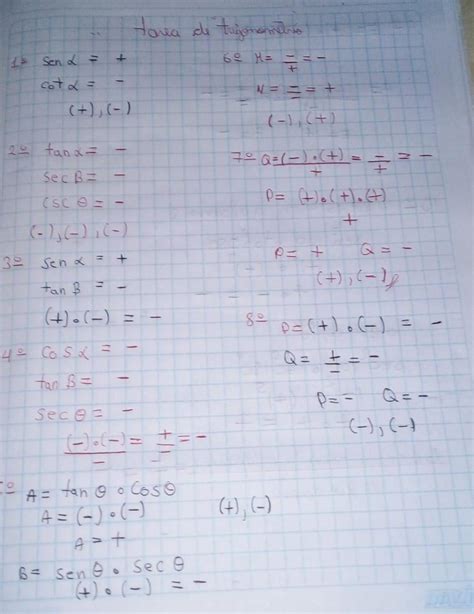 tarea de trigonometria
1º sen α = +
cot α = -
(+), (-)
2º tan α = -
sec B = -
csc θ = -
(-), (-), (-)
3º sen α = +
tan B = -
(+) . (-) = -
4º cos α = -
tan B = -
sec θ = -
(-) . (-) / - = + / - = -
5º A = tan θ . cos θ
A = (-) . (-)
A = +
(+), (-)
B = sen θ . sec θ
(+) . (-) = -
6º M = - / + = -
N = - / - = +
(-), (+)
7º Q = (-) . (+) / + = - / + = -
P = (+) . (+) . (+) / +
P = + Q = -
(+), (-)
8º P = (+) . (-) = -
Q = + / - = -
P = - Q = -
(-), (-)